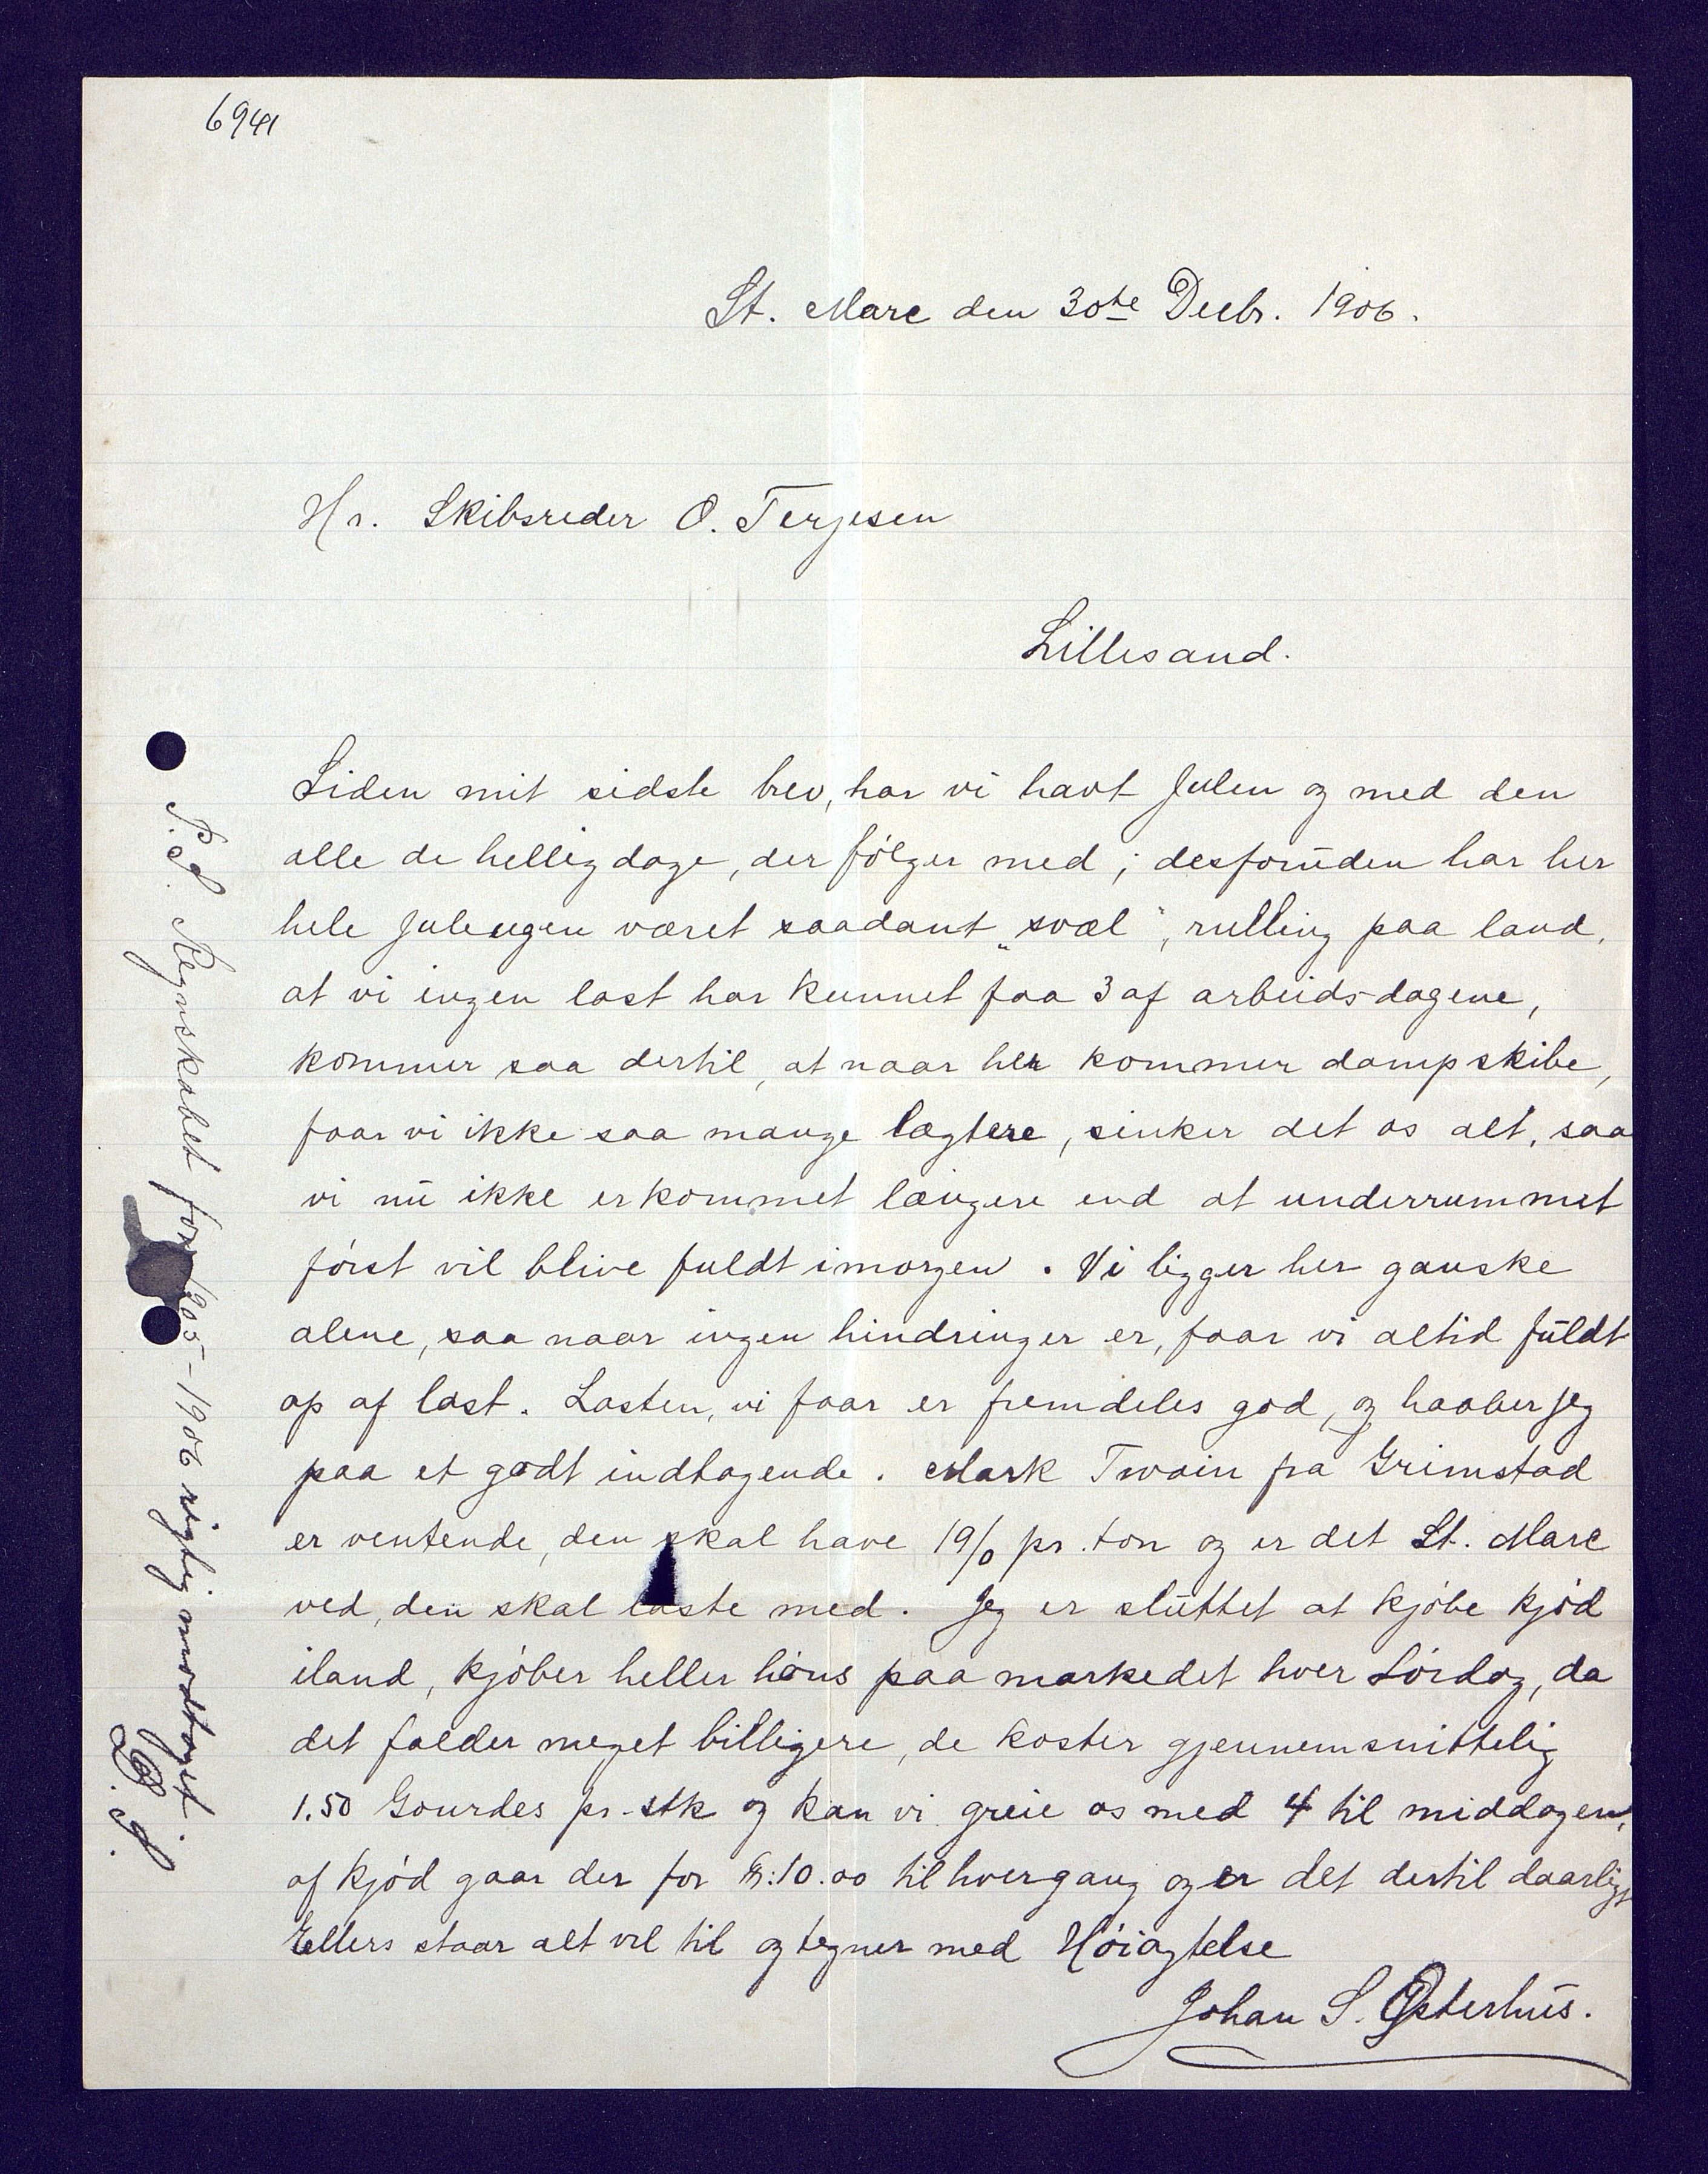 6941
St. Marc den 30te Decbr. 1906.
Hr. Skibsreder O. Terjesen
Lillesand.
Siden mit sidste brev, har vi havt Julen og med den
alle de helligdage, der følger med; desforuden har her
hele Juleugen været saadant „svæl", rulling paa land,
at vi ingen last har kunnet faa 3 af arbeids-dagene,
kommer saa dertil, at naar her kommer dampskibe,
faar vi ikke saa mange lægtere, sinker det os alt, saa
vi nu ikke er kommet længere end at underrummet
først vil blive fuldt imorgen. Vi ligger her ganske
alene, saa naar ingen hindringer er, faar vi altid fuldt
op af last. Lasten, vi faar er fremdeles god, og haaber jeg
paa et godt indtagende. Mark Twain fra Grimstad
er ventende, den skal have 19/0 pr. ton og er det St. Marc
ved, den skal laste med. Jeg er sluttet at kjøbe kjød
iland, kjøber heller høns paa markedet hver Lørdag, da
det falder meget billigere, de koster gjennemsnittelig
1.50 Gourdes pr-stk og kan vi greie os med 4 til middagen,
af kjød gaar der for G:10.00 til hvergang og er det dertil daarligt
Ellers staar alt vel til og tegner med Høiagtelse
Johan S. Østerhus.
P.S. Regnskabet for 1905-1906 rigtig modtaget.
D. S.